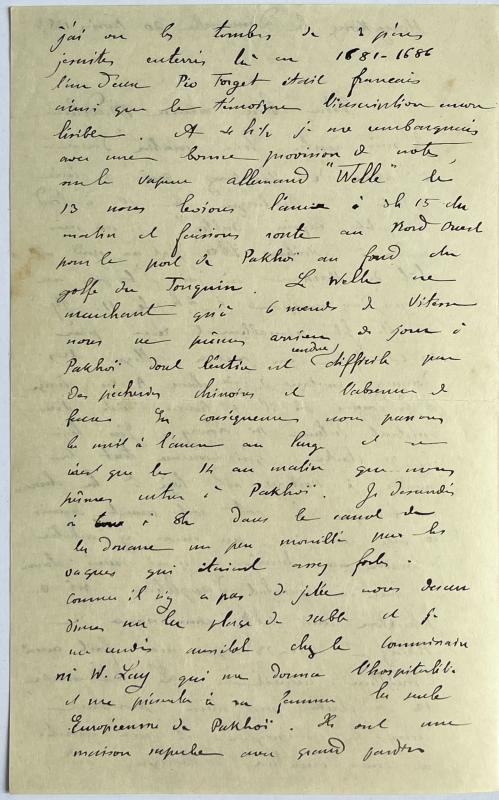 j'ai vu les tombes de 2 pères
jesuites enterrés là en 1681-1686
l'un d'eux Pio Forget était francais
ainsi que le témoigne l'inscription encore
lisible. A 4 h ½ je me rembarquais
avec une bonne provision de notes
sur le vapeur allemand "Welle" le
13 nous levions l'ancre à 3h 15 du
matin et faisions route au Nord Ouest
pour le port de Pakhoï au fond du
golfe du Tonquin. Le Welle ne
marchant qu'à 6 nœuds de vitesse
nous ne pûmes arriver de jour à
Pakhoï dont l'entrée est rendue difficile par
des pecheries chinoises et l'absence de
feux En consequence nous passons
la nuit à l'ancre au large et ce
n'est que le 14 au matin que nous
pûmes entrer à Pakhoï. Je descendis
à à 8h dans le canot de
la douane un peu mouillé par les
vagues qui étaient assez fortes.
comme il n'y a pas de jetée nous descen
dimes sur la plage de sable et je
me rendis aussitot chez le commissaire
W. Lay qui me donna l'hospitalité
et me présenta à sa femme la seule
Européenne de Pakhoï. Ils ont une
maison superbe avec grand jardin